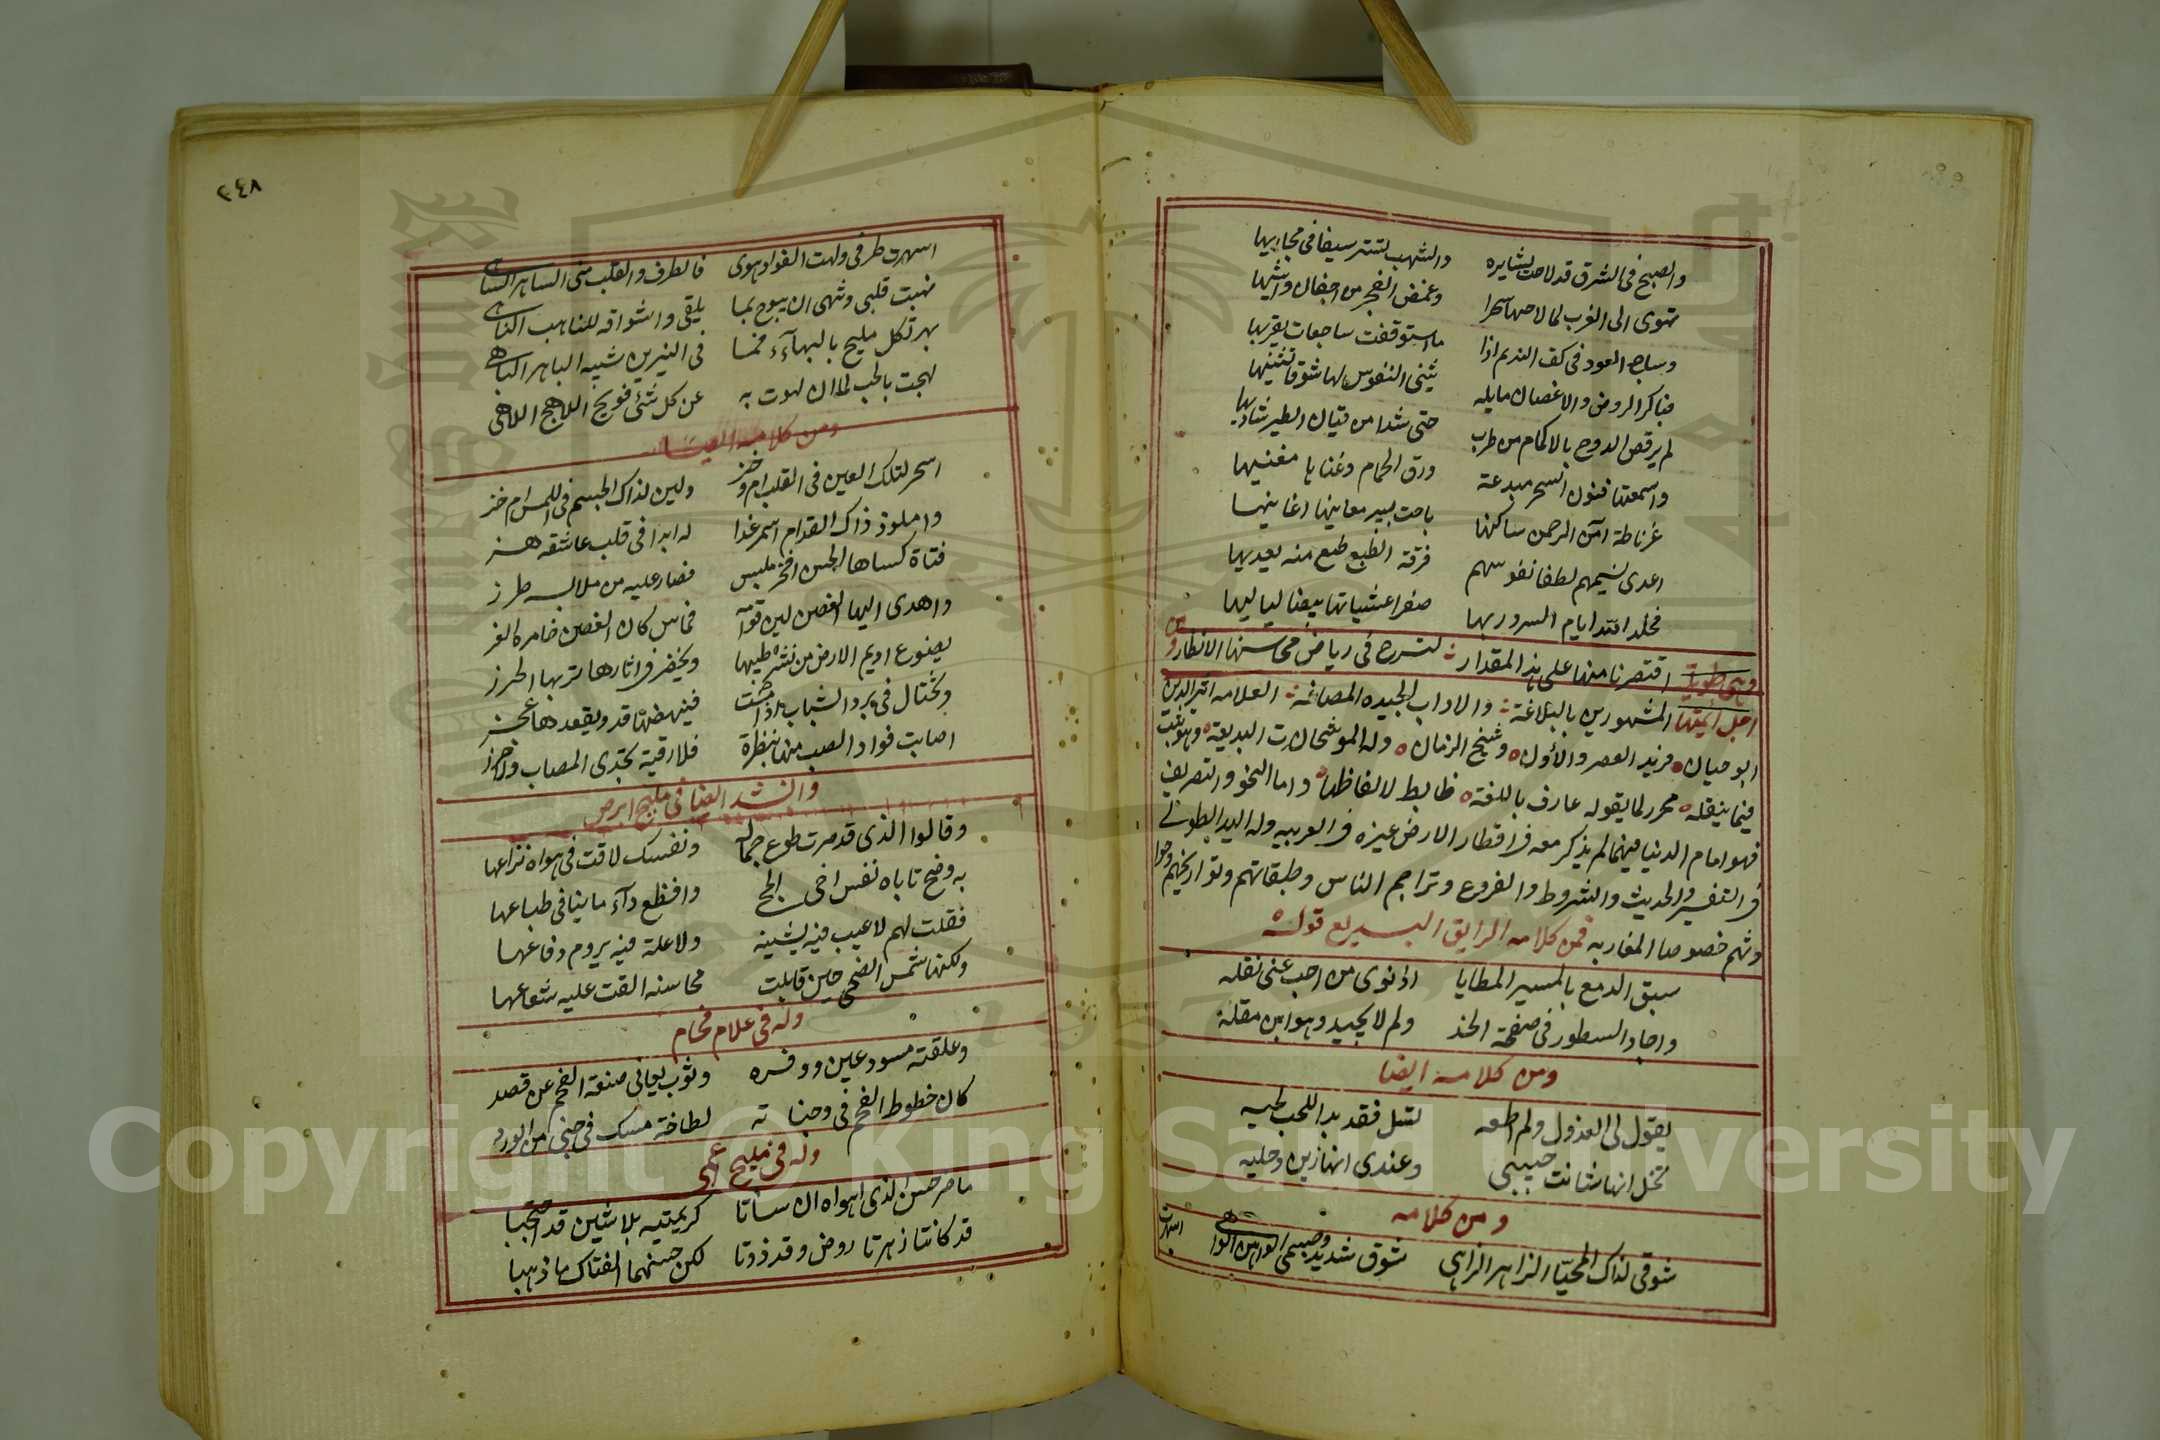 والصبح في الشرق قد لاحت بشايره والشهب تستر سيفا في مجاريها
تهوى الى الغرب لما لاحها سحرا وغمض الفجر من اجفان واشيها
وساجع العود في كف النديم اذا ما استوقفت ساجعات يقربها
فباكر الروض والاغصان مايله يثني النفوس لها شوقا تثنيها
لم يرقص الدوح بالاكمام من طرب حتى شدا من قيان الطير شاديها
واسمعتنا فنون السحر مبدعة ورق الحمام وغنايا مغنيها
غرناطة آمن الرحمن ساكنها باحت بسر معانيها اغانيها
اعدى نسيمهم لطفا نفوسهم فرقة الطبع طبع منه يعديها
فخلد الله ايام السرور بها صفرا عشياتها بيضا لياليها
وهي طويلة اقتصرنا منها على هذا المقدار لتسرح في رياض محاسنها الانظار ومن
اجل ايمتها المشهورين بالبلاغة والاداب الجيده المصاغة العلامه اثير الدين
ابو حيان فريد العصر والأول وشيخ الزمان وله الموشحات البديعه وهو ثبت
فيما ينقله محرر لما يقوله عارف باللغة ضابط لالفاظها واما النحو والتصريف
فهو امام الدنيا فيهما لم يذكر معه في اقطار الارض غيره في العربيه وله اليد الطولى
في التفسير والحديث والشروط والفروع وتراجم الناس وطبقاتهم وتواريخهم
خصوصا المغاربه فمن كلامه الرايق البديع قوله
سبق الدمع بالمسير المطايا اذ نوى من احب عنى نقله
واجاد السطور في صفحة الخد ولم لا يجيد وهو ابن مقلة
ومن كلامه ايضا
يقول لي العذول ولم اطعه تسل فقد بدا للحب لحيه
تخيل انها شانت حبيبي وعندي انها زين وحليه
ومن كلامه
شوقي لذاك المحيا الزاهر الزاهي شوق شديد وجسمي الواهن الواهي
اسهرت
٢٤٨
اسهرت طرفي ولهت الفؤاد هوى فالطرف والقلب مني الساهر الساهي
نهبت قلبي وتنهى ان يبوح بما يلقى واشواقه للناهب الناهي
بهرت كل مليح بالبهآء فما في النيرين شبيه الباهر الباهي
لهجت بالحب لما ان لهوت به عن كل شئ فويح اللاهج اللاهي
ومن كلامه ايضا
اسحر لتلك العين في القلب ام وخز ولين لذاك الجسم في اللمس ام خز
واملود ذاك القد ام اسمر غدا له ابدا في قلب عاشقه هز
فتاة كساها الحسن افخر ملبس فصار عليه من ملابسه طرز
واهدى اليها الغصن لين قوامه فماس كان الغصن خامره الغز
يضوع اديم الارض من نشر طيبها ويخضر في اثارها تربها الجرز
وتختال في برد الشباب اذا مشت فينهضها قد ويقعدها عجز
اصابت فواد الصب منها بنظرة فلا رقية تجدي المصاب ولا حرز
وانشد ايضا في مليح ابرص
وقالوا الذي قد صرت طوع جماله ونفسك لاقت في هواه نزاعها
به وضح تاباه نفس اخى الحجى وافظع دآء ما ينافي طباعها
فقلت لهم لا عيب فيه يشينه ولا علة فيه يروم دفاعها
ولكنها شمس الضحى حين قابلت محاسنه القت عليه شعاعها
وله في غلام فحام
وعلقته مسود عين ووفره وثوب يعاني صنعة الفحم عن قصد
كان خطوط الفحم في وجناته لطاخة مسك في جني من الورد
وله في مليح عمي
ما ضر حسن الذي اهواه ان سنانا كريمتيه بلا شين قد احتجبا
قد كانتا زهرتا روض وقد ذوتا لكن حسنهما الفتاك ما ذهبا
Copyright © King Saud University
King Saud University
1957